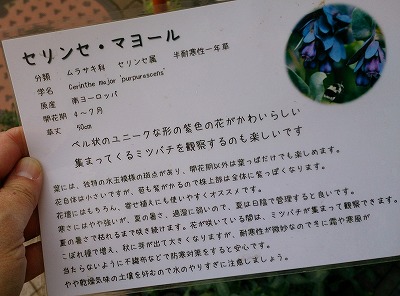 セリンセ・マヨール
分類 ムラサキ科 セリンセ属 半耐寒性一年草
学名 Cerinthe major 'purpurascens'
原産 南ヨーロッパ
開花期 4～7月
草丈 50cm
ベル状のユニークな形の紫色の花がかわいらしい
集まってくるミツバチを観察するのも楽しいです
葉には、独特の水玉模様の斑点があり、開花期以外は葉っぱだけでも楽しめます。
花自体は小さいですが、苞も紫がかるので株上部は全体に紫っぽくなります。
花壇にはもちろん、寄せ植えにも使いやすくオススメです。
寒さにはやや強いが、夏の暑さ、過湿に弱いので、夏は日陰で管理すると良いです。
夏の暑さで枯れるまで咲き続けます。花が咲いている間は、ミツバチが集まって観察できます。
こぼれ種で増え、秋に芽が出て大きくなりますが、耐寒性が微妙なので冬に霜や寒風が
当たらないように不織布などで防寒対策をすると安心です。
やや乾燥気味の土壌を好むので水のやりすぎに注意しましょう。